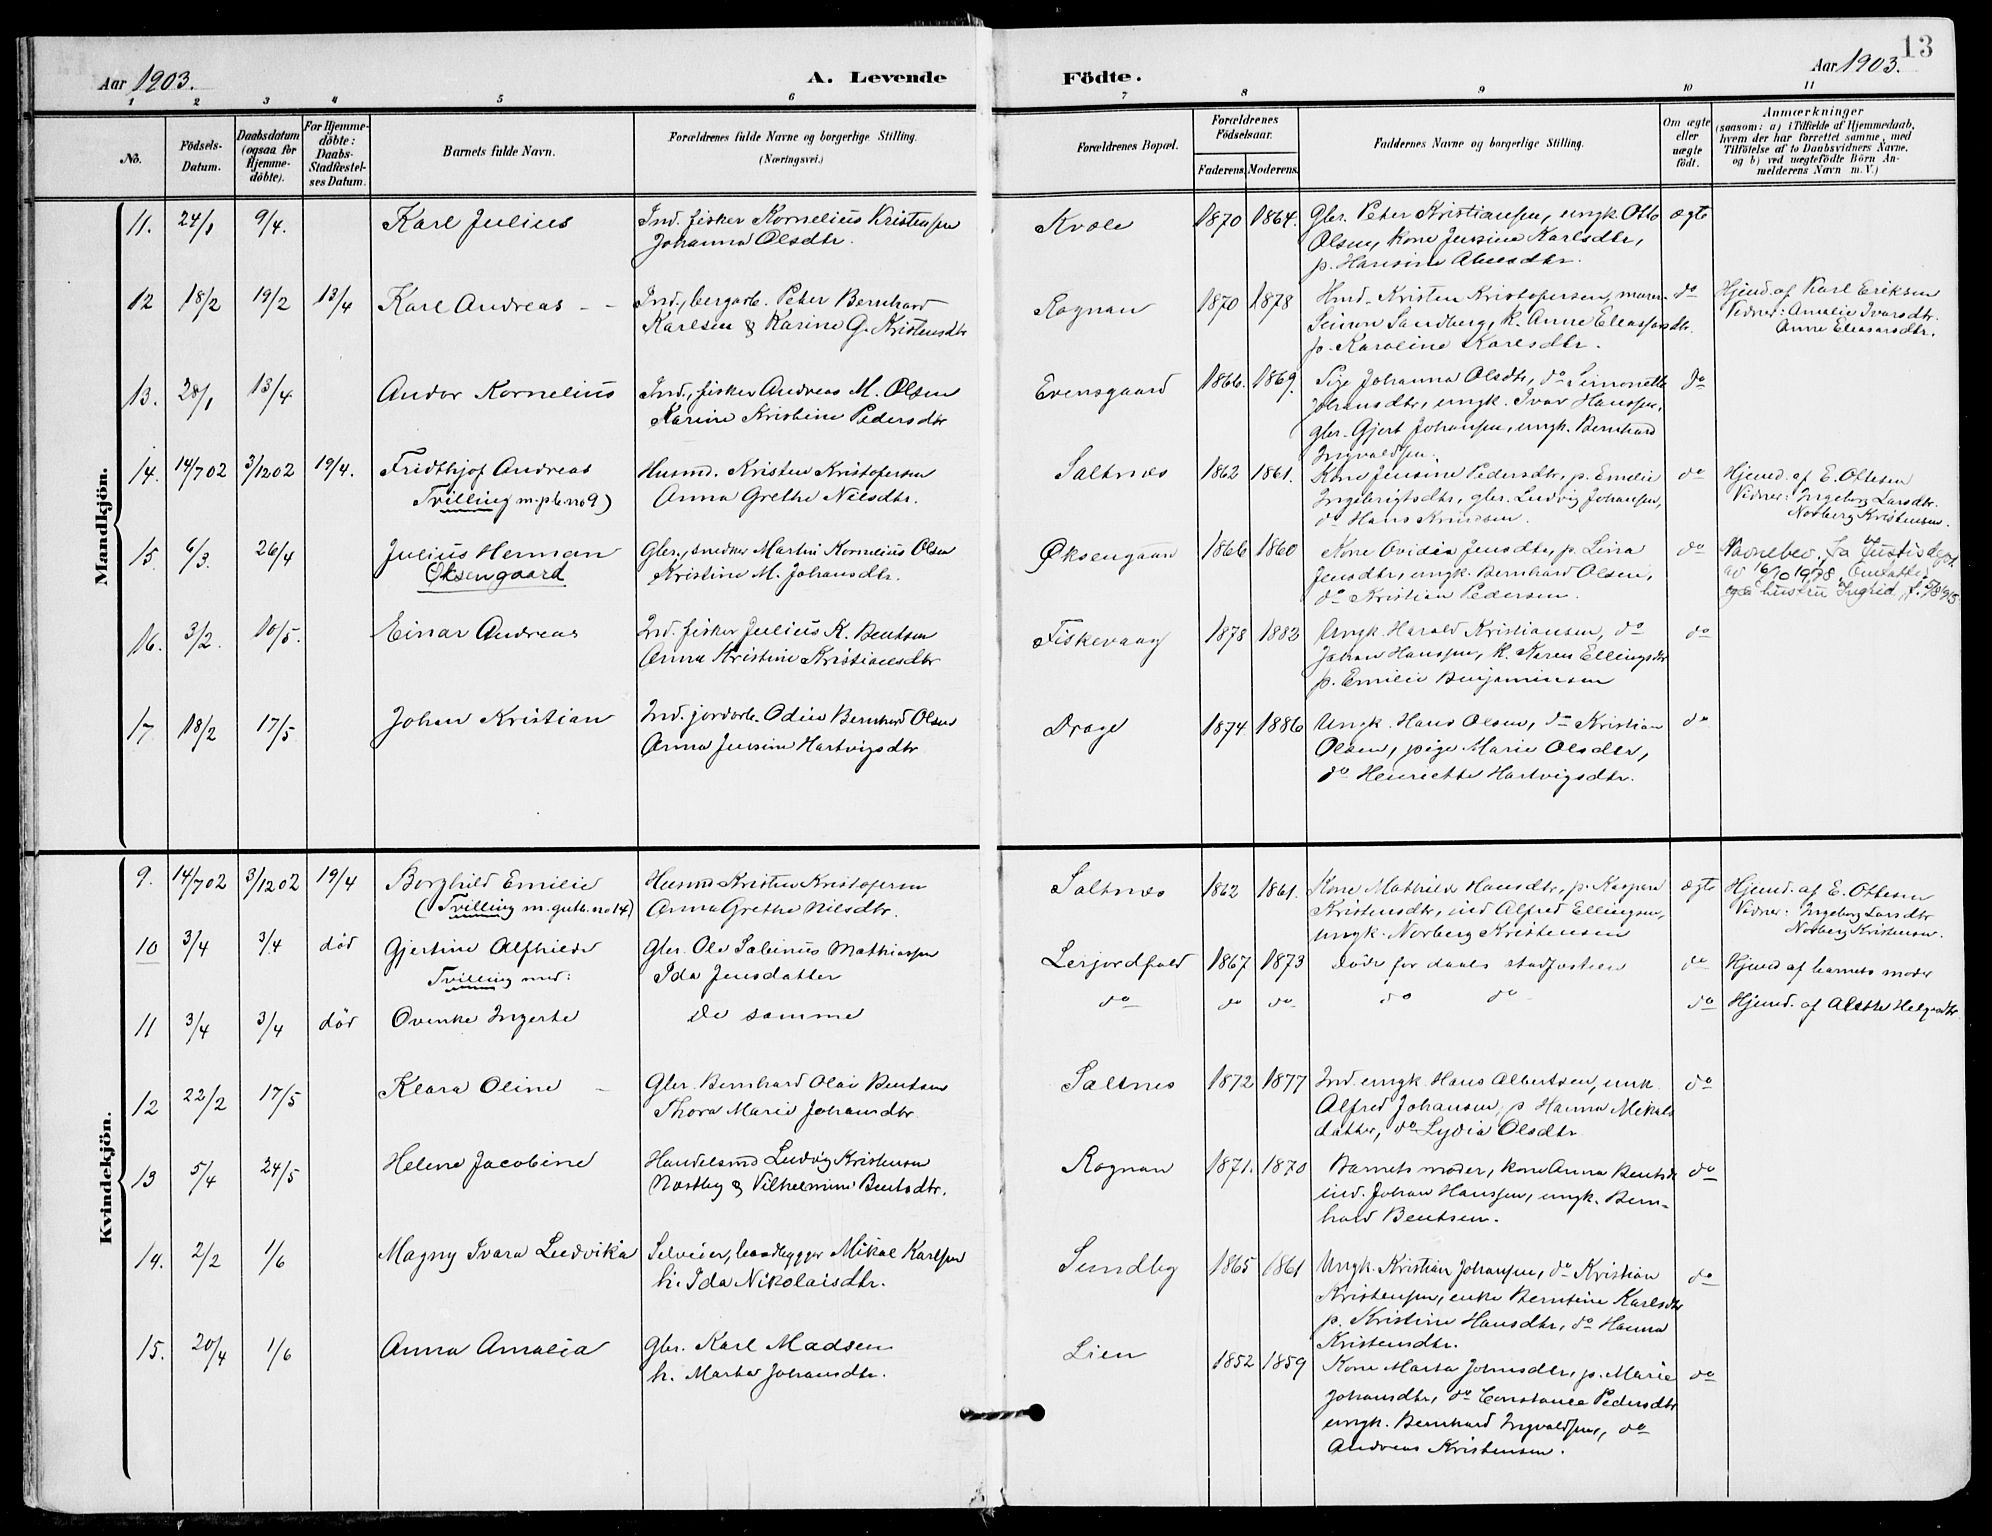 13
Aar 1903.
A. Levende
Födte.
Aar 1903.
1 2 3 4 5 6 7 8 9 10 11
No.
Födsels-
Datum.
Daabsdatum
(ogsaa for
Hjemme-
döbte).
For Hjemme-
döbte:
Daabs-
Stadfæstel-
ses Datum.
Barnets fulde Navn.
Forældrenes fulde Navne og borgerlige Stilling.
(Næringsvei.)
Forældrenes Bopæl.
Forældrenes
Födselsaar.
Faderens. Moderens.
Faddernes Navne og borgerlige Stilling.
Om ægte
eller
uægte
født.
Anmærkninger
(saasom: a) i Tilfælde af Hjemmedaab,
hvem der har forrettet samme, med
Tilföielse af to Daabsvidners Navne,
og b) ved uægtefödte Börn An-
melderens Navn m. V.)
Mandkjön.
11. 24/1 9/4. Karl Julius
Ind. fisker Kornelius Kristensen
Johanna Olsdtr.
Kvæle 1870 1864.
Gbr. Peter Kristiansen, ungk. Otto
Olsen, kone Jensine Karlsdtr,
p. Hansine
ægte
12 18/2 19/2 13/4 Karl Andreas –
Ind., bergarb. Peter Bernhard
Karlsen & Karine G. Kristensdtr
Rognan 1870 1878
Hmd. Kristen Kristofersen, murer
Seimon Sandberg, k. Anne Eleassardtr.
p. Karoline Karlsdtr.
do
Hjmd. af Karl Eriksen
Vidner: Amalie Ivarsdtr.
Anne Eleasarsdtr.
13. 28/1 13/4 Andor Kornelius
Ind., fisker Andreas M. Olsen
Karine Kristine Pedersdtr
Evensgaard 1866. 1869.
Pige Johanna Olsdtr, do Simonette
Johansdtr, ungk. Ivar Hanssen,
gbr. Gjert Johansen, ungk. Bernhard
Ingvaldsen.
do
14. 14/7 02 3/12 02 19/4. Fridthjof Andreas
Tvilling m. pb. no 9)
Husmd. Kristen Kristofersen
Anna Grethe Nilsdtr.
Saltnes 1862 1861.
Kone Jensine Pedersdtr, p. Emelie
Ingebrigtsdtr, gbr. Ludvig Johansen,
do Hans Knudsen.
do
Hjmd. af E. Ottesen
Vidner: Ingeborg Larsdtr.
Norberg Kristensen.
15. 6/3. 26/4 Julius Herman
Øksengaard
Gbr., snedker Martin Kornelius Olsen
Kristine M. Johansdtr.
Øksengaard 1866 1860
Kone Ovidia Jensdtr, p. Lina
Jensdtr, ungk. Bernhard Olsen,
do Kristian Pedersen.
do
Navnebev. fra Justisdept.
av 16/10 1928. Omfatter
også hustru Ingrid, f.
16. 3/2. 10/5. Einar Andreas
Ind. fisker Julius K. Bentsen
Anna Kristine Kristiansdtr
Fiskevaag 1878 1882
Ungk. Harald Kristiansen, do
Johan Hanssen, k. Karen Ellingsdtr
p. Emilie Benjaminsen
do
17 18/2 17/5 Johan Kristian
Ind. jordarb. Odin Bernhard Olsen
Anna Jensine Hartvigsdtr
Drage 1874 1886
Ungk. Hans Olsen, do Kristian
Olsen, pige Marie Olsdtr,
do Henriette Hartvigsdtr.
do
Kvindekjön.
9. 14/7 02 3/12 02 19/4 Borghild Emilie
(Tvilling m. gutb. no 14)
Husmd Kristen Kristofersen
Anna Grethe Nilsdtr.
Saltnes 1862 1861.
Kone Mathilde Hansdtr, p. Kaspara
Kristensdtr, ind Alfred Ellingsen,
ungk. Norberg Kristensen
ægte
Hjmd. af E. Ottesen
Vidner: Ingeborg Larsdtr
Norberg Kristensen.
10 3/4 3/4 død Gjertine Alfhilde
Tvilling med:
Gbr. Ole Salinus Mathiassen
Ida Jensdatter
Lerjordfald 1867 1873
Døde for daabs stadfæstelse
do
Hjmd af barnets moder
11 3/4 3/4 død Ovenke Ingerte
De samme
do do do do do
do
Hjmd. af Helgesdtr
12 22/2 17/5 Klara Oline –
Gbr. Bernhard Olai Bentsen
Thora Marie Johansdtr.
Saltnes 1872 1877
Ind. ungk. Hans Albertsen, unk.
Alfred Johansen, p Hanna Mikals
datter, do Lydia Olsdtr
do
13 5/4 24/5 Helene Jacobine
Handelsmd Ludvig Kristensen
Nestby & Vilhelmine Bentsdtr.
Rognan 1871. 1870
Barnets moder, kone Anna Bentsdtr
ind. Johan Hanssen, ungk. Bern-
hard Bentsen.
do
14. 2/2 1/6 Magny Ivara Ludvika
Selveier, baadbygger Mikal Karlsen
h. Ida Nikolaisdtr.
Sundby 1865 1861
Ungk. Kristian Johansen, do Kristian
Kristensen, enke Berntine Karlsdtr
p. Kristine Hansdtr, do Hanna
Kristensdtr.
do
15. 20/4 1/6 Anna Amalia
Gbr. Karl Madsen
h. Marta Johansdtr.
Lien 1852 1859
Kone Marta Johnsdtr, p. Marie
Johansdtr, do Constance Pedersdtr
ungk. Bernhard Ingvaldsen, do
Andreas Kristensen.
do